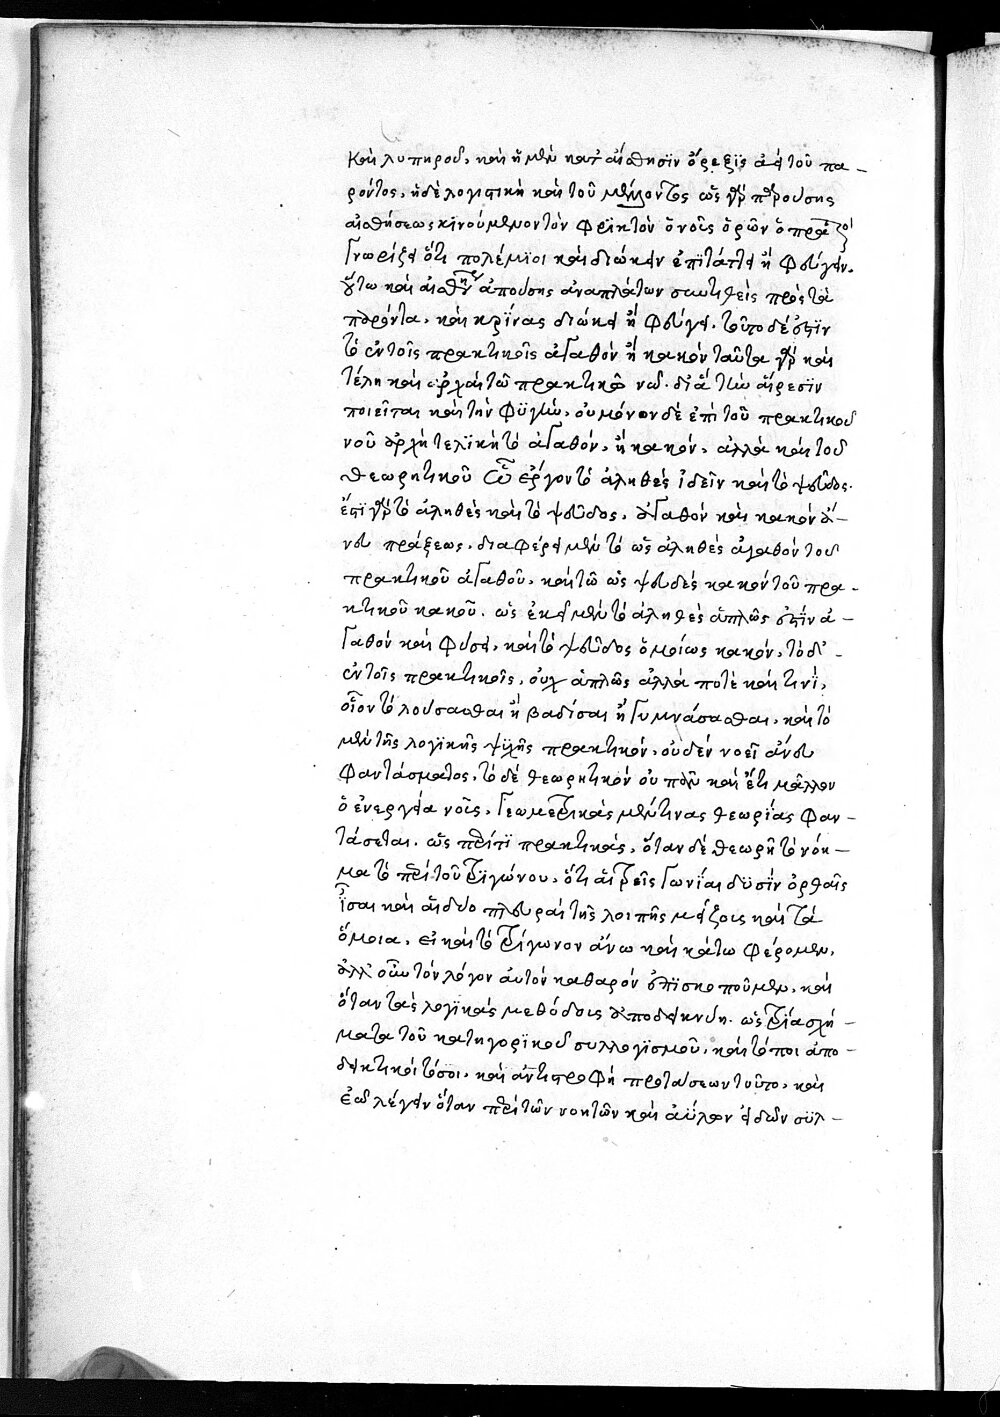 καὶ λυπηροῦ, καὶ ἡ μὲν κατ' αἴσθησϊν ὄρεξϊς ἀεὶ τοῦ πα-
ρόντος, ἡ δὲ λογιστικὴ καὶ τοῦ μέλλοντος ὡς γὰρ παρούσης
αἰσθήσεως κϊνούμενον τὸν φρϊκτὸν ὁ νοῦς ὁρῶν
γνωρίζει ὅτι πολέμϊοι καὶ διώκειν ἐπϊτάττει ἢ φεύγειν.
οὕτω καὶ αἰσθήσεως ἀπούσης ἀναπλάττων συντιθεὶς πρὸς τὰ
παρόντα, καὶ κρίνας διώκει ἢ φεύγει. τοῦτο δέ ἐστϊν
τὸ ἐν τοῖς πρακτικοῖς ἀγαθὸν ἢ κακὸν ταῦτα γὰρ καὶ
τέλη καὶ ἀρχαὶ τῶ πρακτικῶ νῶ. διὰ τὴν αἵρεσϊν
ποιεῖται καὶ τὴν φϋγὴν, οὐ μόνον δὲ ἐπὶ τοῦ πρακτικοῦ
νοῦ ἀρχὴ τελϊκὴ τὸ ἀγαθὸν, ἢ κακόν, ἀλλὰ καὶ τοῦ
θεωρητικοῦ οὗ ἔργον τὸ ἀληθὲς ἰδεῖν καὶ τὸ ψεῦδος.
ἔστϊ γὰρ τὸ ἀληθὲς καὶ τὸ ψεῦδος, ἀγαθὸν καὶ κακὸν ἄ-
νευ πράξεως, διαφέρει μὲν τὸ ὡς ἀληθὲς ἀγαθὸν τοῦ
πρακτικοῦ ἀγαθοῦ, καὶ τῶ ὡς ψευδὲς κακὸν τοῦ πρα-
κτικοῦ κακοῦ. ὡς ἐκεῖ μὲν τὸ ἀληθὲς ἁπλῶς ἐστϊν ἀ-
γαθὸν καὶ φύσει, καὶ τὸ ψεῦδος ὁμοίως κακόν, τὸ δ'
ἐν τοῖς πρακτικοῖς, οὐχ ἁπλῶς ἀλλὰ ποτὲ καὶ τινί,
οἷον τὸ λούσασθαι ἢ βαδίσαι ἢ γυμνάσασθαι, καὶ τὸ
μὲν τῆς λογϊκῆς ψϋχῆς πρακτικόν, οὐδὲν νοεῖ ἄνευ
φαντάσματος, τὸ δὲ θεωρητικὸν οὐ πάνυ καὶ ἔτι μᾶλλον
ὁ ἐνεργείᾳ νοῦς, γεωμετρικὰς μέν τινας θεωρίας φαν-
τάσεται. ὡς περί τϊ πρακτικάς, ὅταν δὲ θεωρῆ τὸ νόη-
μα τὸ περὶ τοῦ τρϊγώνου, ὅτι αἱ τρεῖς γωνίαι δϋσὶν ὀρθαῖς
ἴσαι καὶ αἱ δύο πλευραὶ τῆς λοιπῆς μείζους καὶ τὰ
ὅμοια, εἰ καὶ τὸ τρίγωνον ἄνω καὶ κάτω φέρομεν,
ἀλλ' οὖν τὸν λόγον αὐτὸν καθαρὸν ἐπϊσκοποῦμεν, καὶ
ὅταν τὰς λογϊκὰς μεθόδους ἀποδεικνύη. ὡς τρία σχή-
ματα τοῦ κατηγορϊκοῦ συλλογϊσμοῦ, καὶ τόποι ἀπο-
δεικτικοὶ τόσοι, καὶ ἀντιστροφὴ προτάσεων τοῦτο, καὶ
ἐῶ λέγειν ὅταν περὶ τῶν νοητῶν καὶ ἀΰλων εἰδῶν σϋλ-